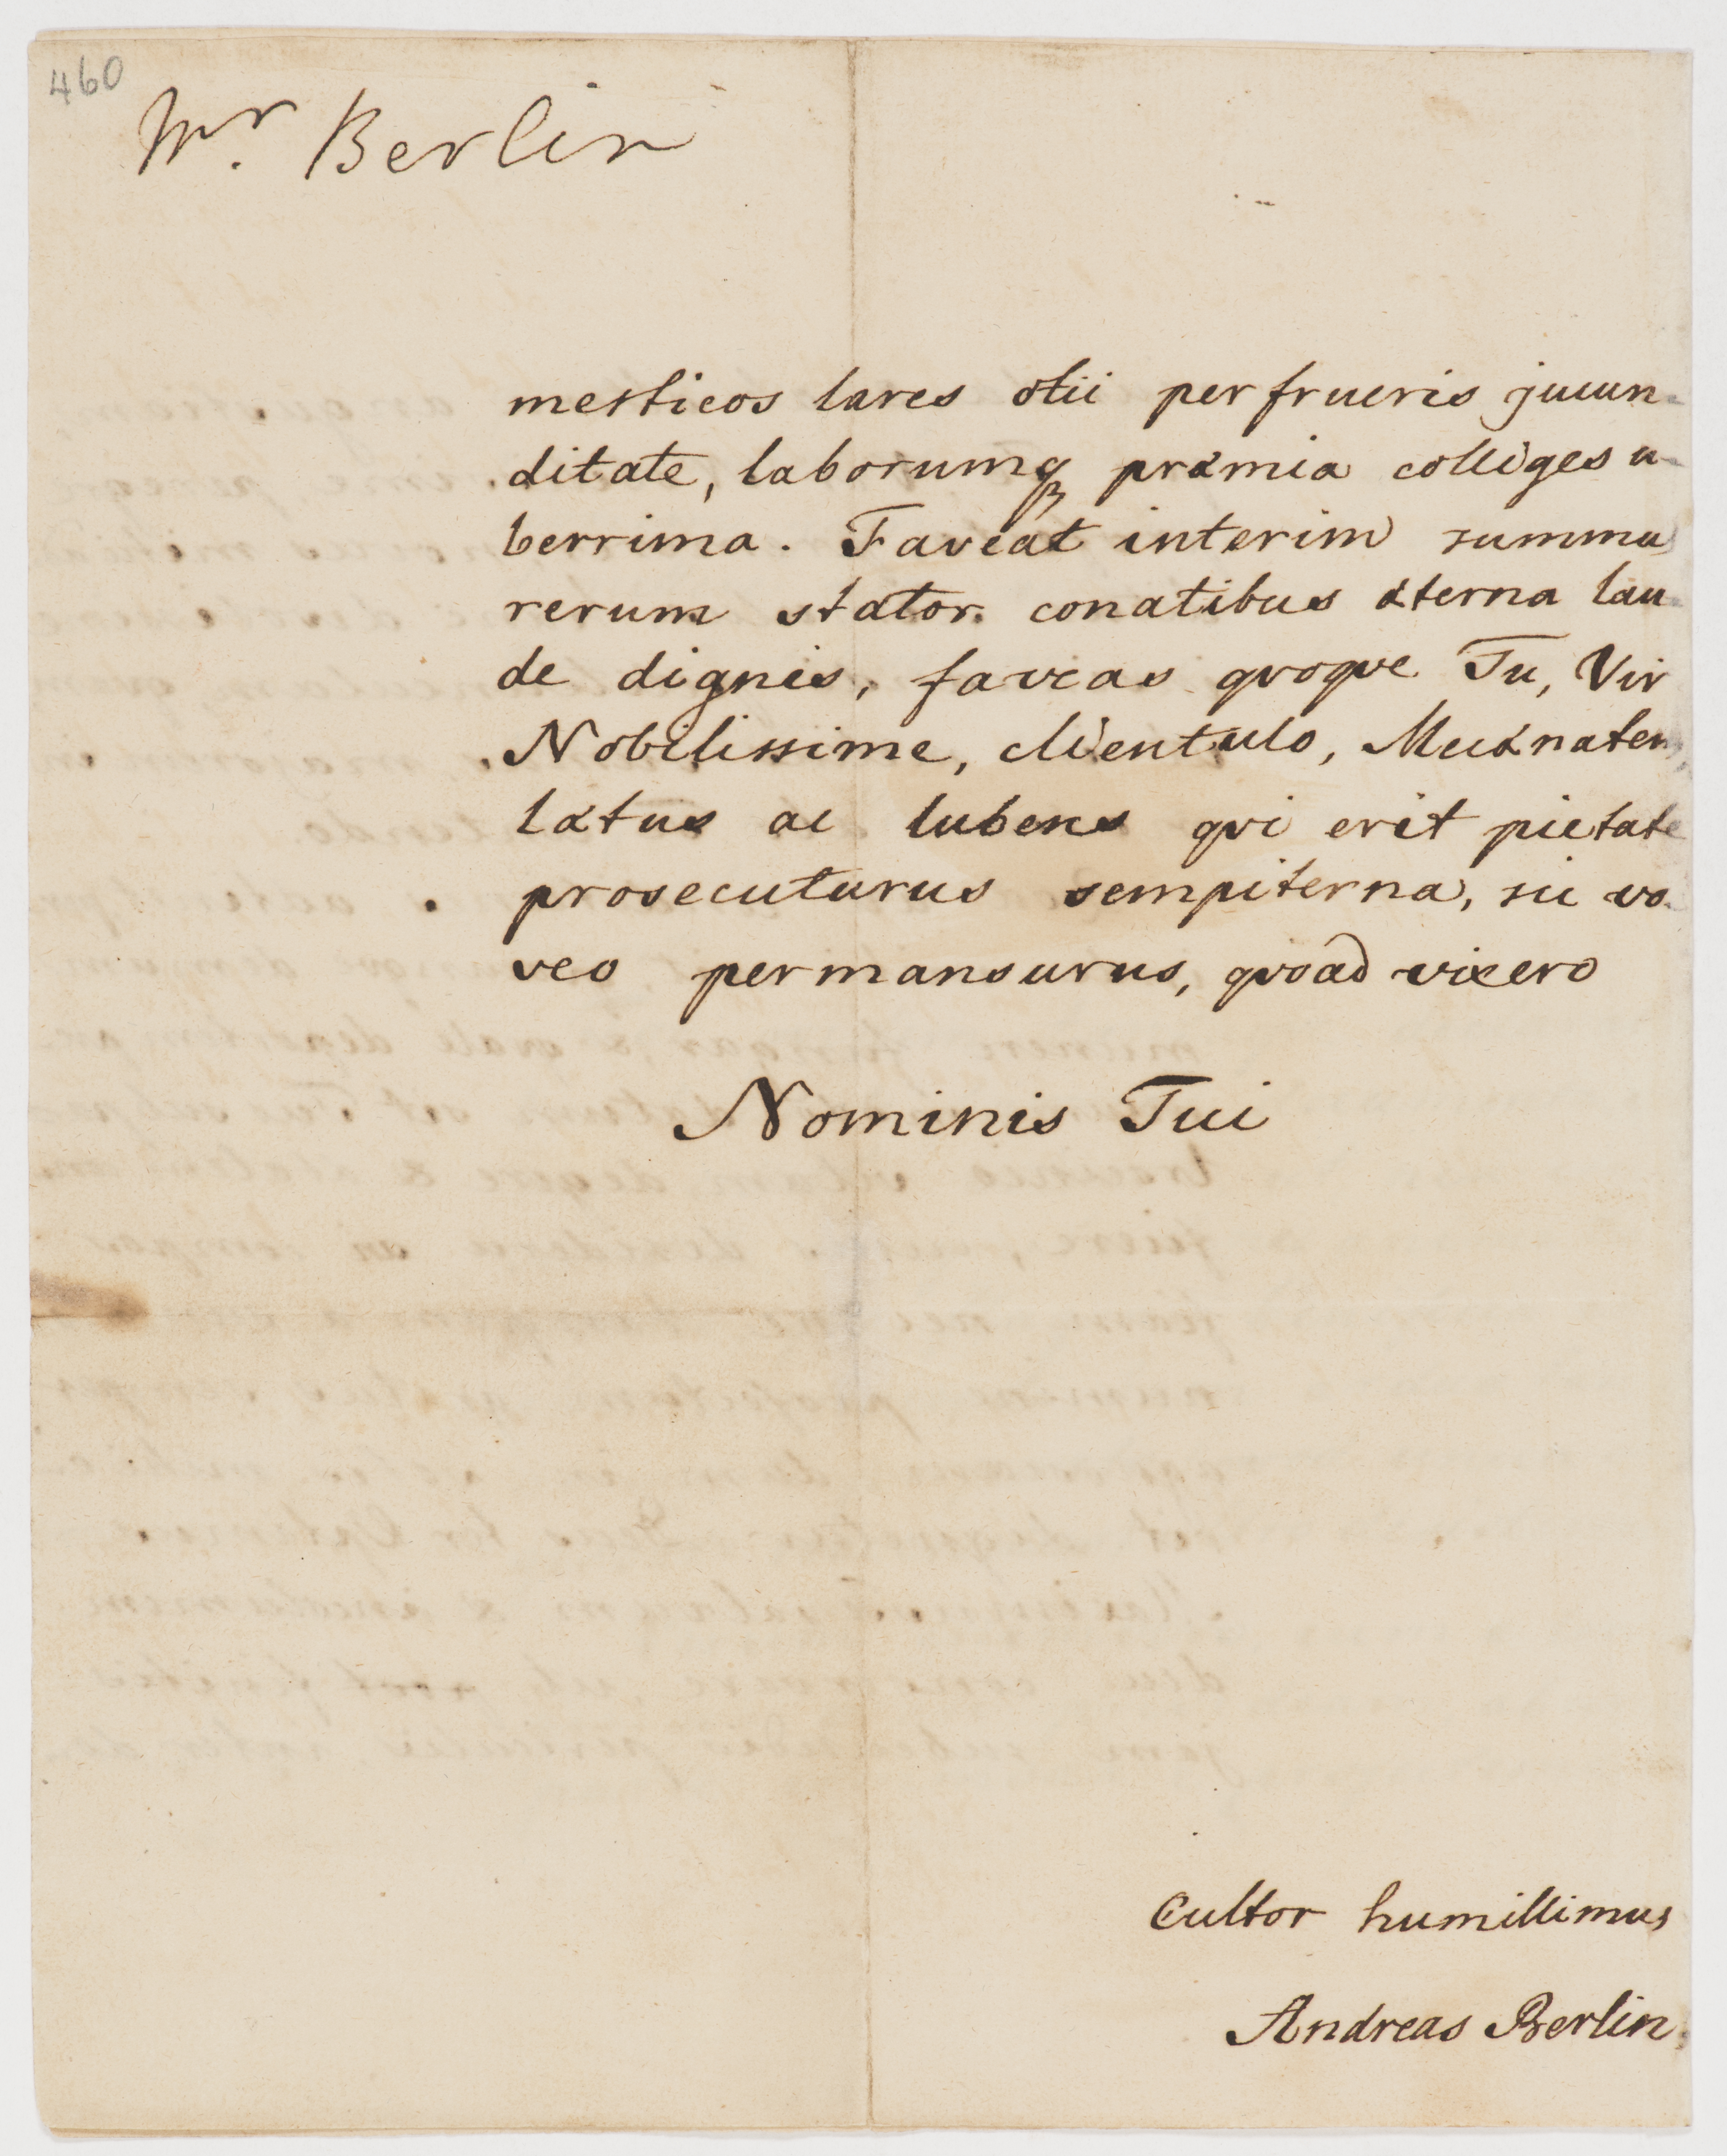 460
Mr. Berlin
mesticos lares otii perfrueris jucun-
ditate, laborumq præmia colliges u-
berrima. Faveat interim summu
rerum stator conatibus æterna lau-
de dignis, faveas qvoqve Tu, Vir
Nobilissime, clientulo, Mecænatem
lætus ac lubens qvi erit pietate
prosecuturus sempiterna, sic vo-
veo permansurus, qvoad vixero
Nominis Tui
Cultor humillimus
Andreas Berlin.